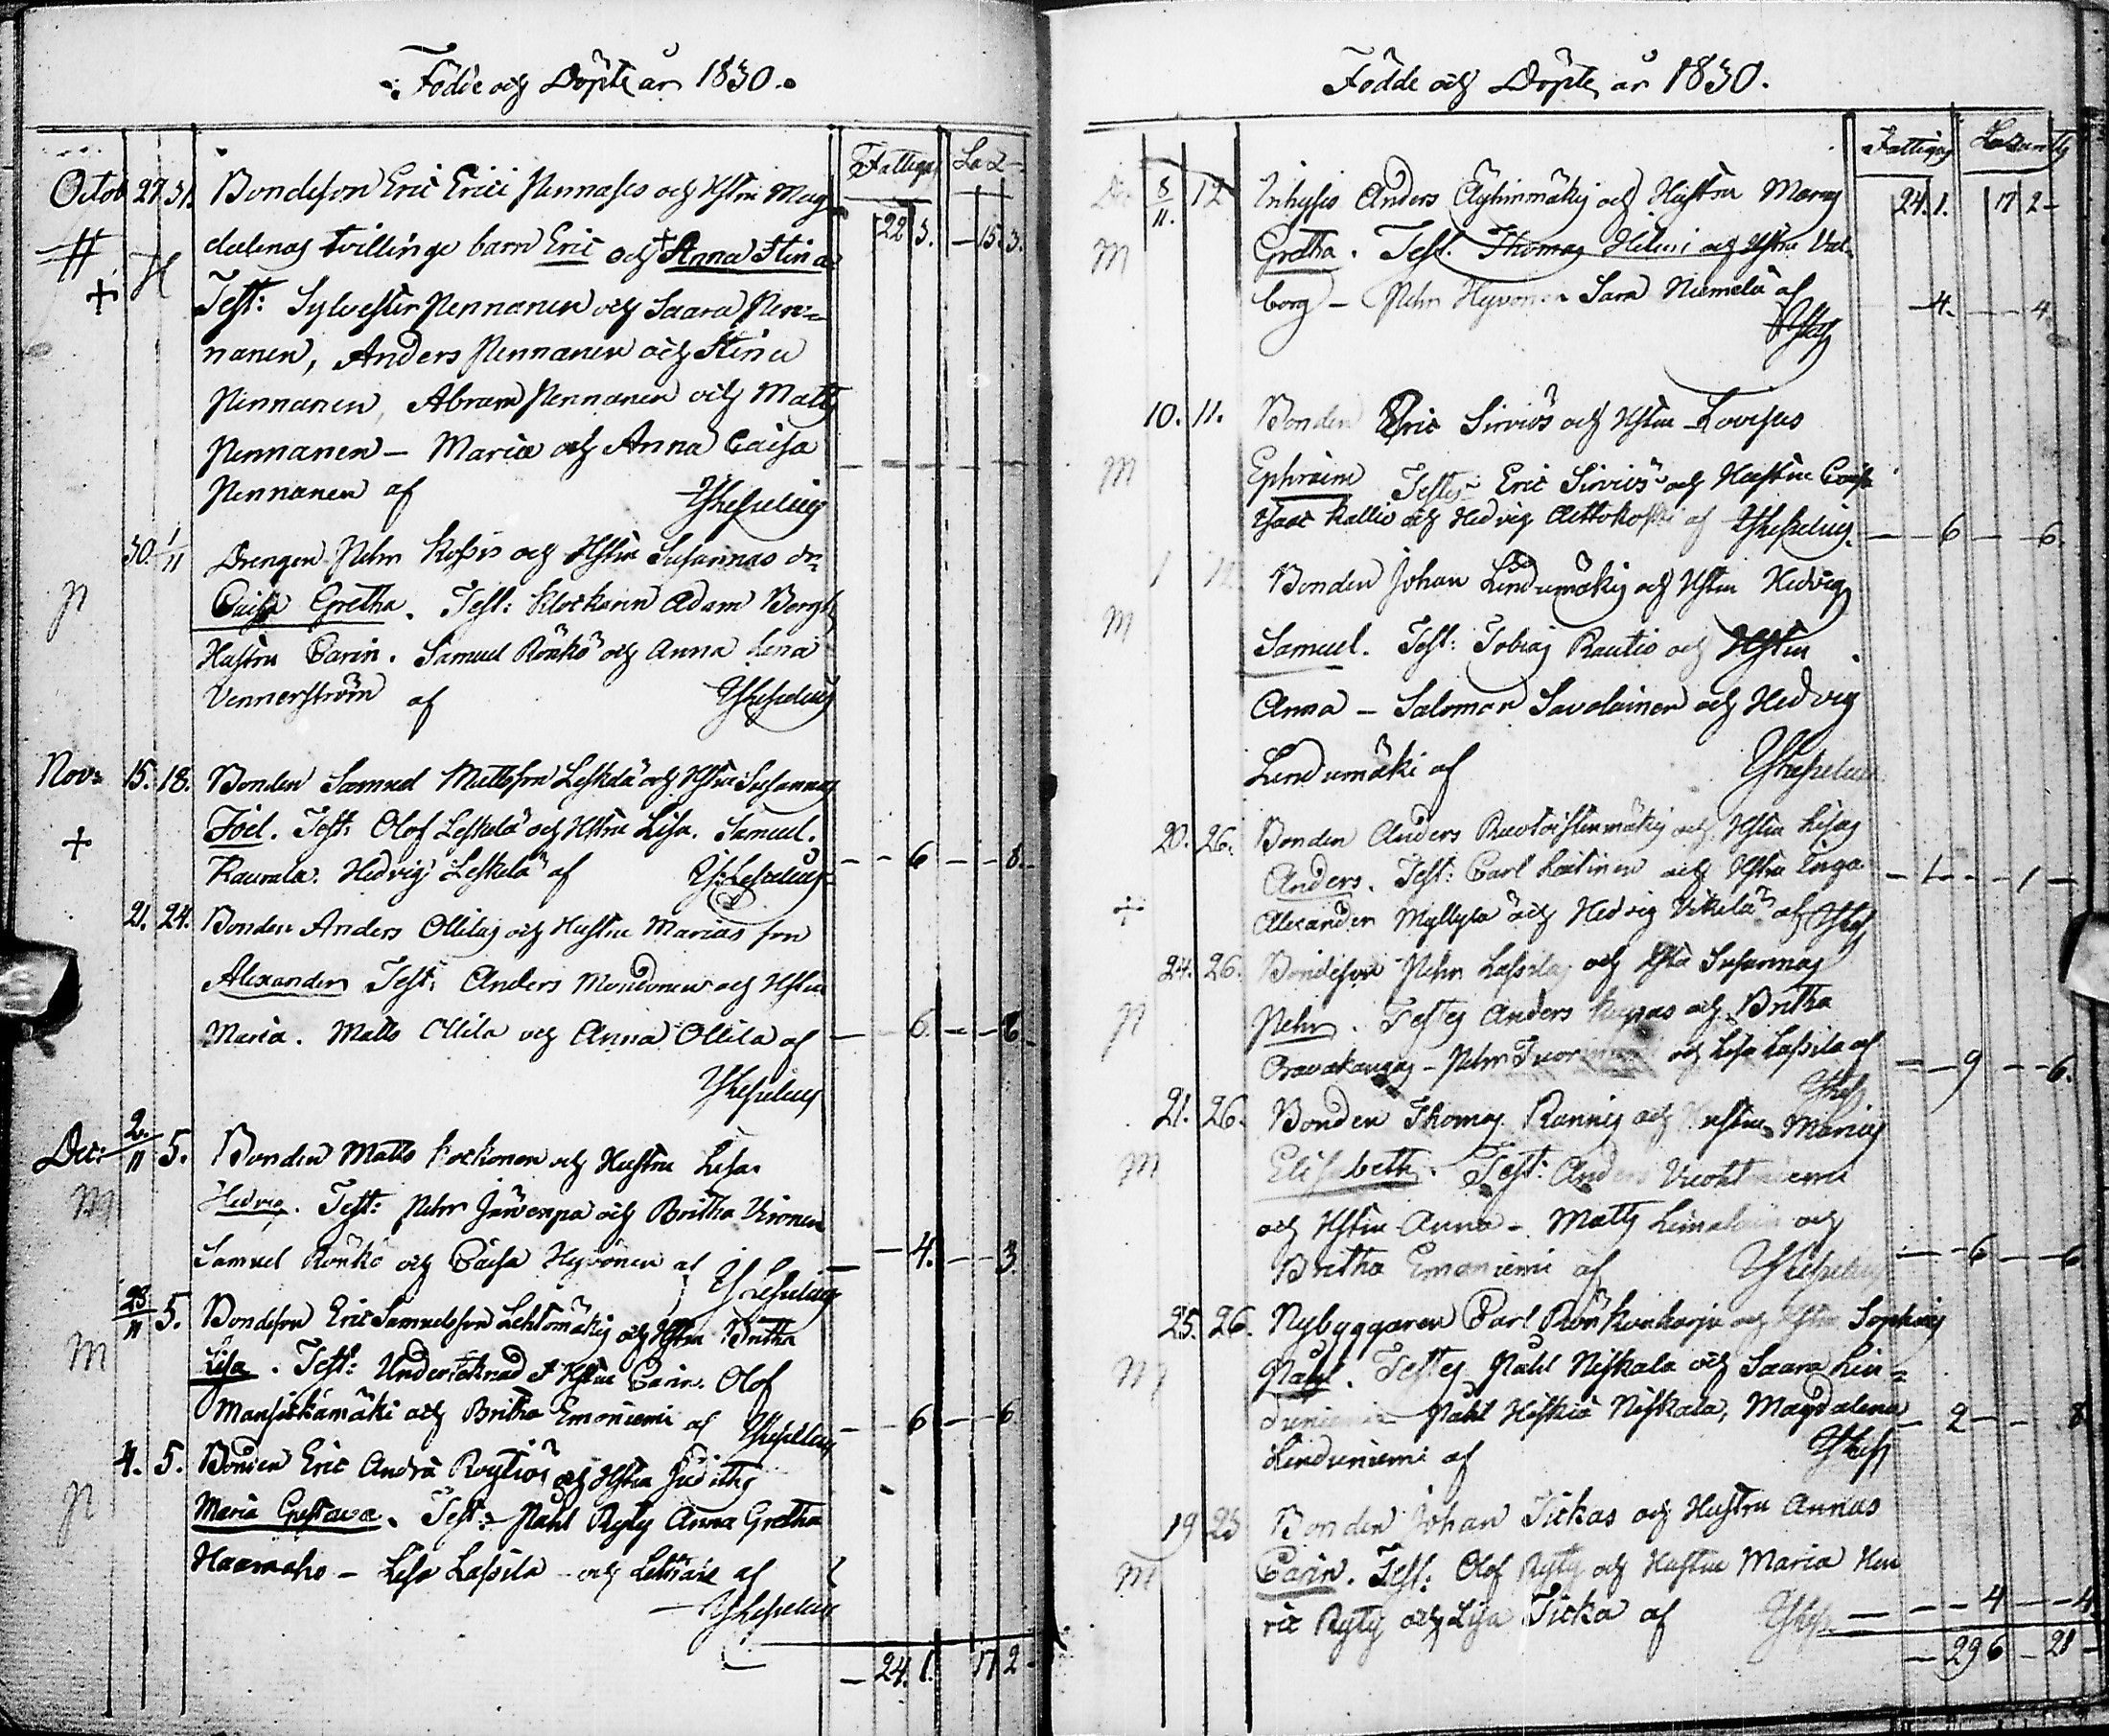 Födde och Döpte år 1830.
Fattigg La
Octob 27. 31. Bondeson Eric Erici Pennases och Hstru Mag
dalenas tvillinge barn Eric och Anna Stina 22 3. – 15. 3.
Test: Sylvester Pennanen och Saara Pen-
nanen, Anders Pennanen och Stina
Pennanen, Abram Pennanen och Matts
Pennanen – Maria och Anna Caisa
Pennanen af
30. 1/11 Drengen Pehr och Hstru Susannas dr
Caisa Gretha. Test: Klockaren Adam Bergh
Hustru Carin. Samuel Rönkö och Anna Lena
Vennerström af
Nov: 15. 18. Bonden Samuel Mattsson Leskelä och Hstru Susannas
Joel. Test: Olof Leskelä och Hstru Lisa. Samuel
Kaurala. Hedvig Leskelä af – – 6 – – 8.
21. 24. Bonden Anders Ollilas och Hustru Marias son
Alexander Test: Anders Mondonen och Hstru
Maria. Matts Ollila och Anna Ollila af – 6. – – 6
Dec: 2/11 5. Bonden Matts Kockonen och Hustru Lisas
M Hedvig. Test: Pehr Järvenpä och Britha Kironen
Samuel Rönkö och Caisa Hyvönen af – 4. – – 3.
23/11 5. Bondeson Eric Samuelsson Lehtomäkis och Hstru Britha
M Lisa. Test: Undertecknad & Hstru Carin. Olof
Mansickamäki och Britha Emoniemi af – 6 – – 6
4. 5. Bonden Eric Andr. och Hstru Judiths
Maria Gustava. Test: Påhl Ryty Anna Gretha
Haaraaho – Lisa Lassila och af
– 24. 1. 17 2 –
Födde och Döpte år 1830.
Fattigg
8/11. 12 Inhyses Anders Äyhinmäkis och Hustru Marias 24. 1. 17 2 –
M Gretha. Test. Thomas Heleni och Hstru Val-
borg – Pehr Hyvönen Sara Niemelä af – 4. – – 4.
10. 11. Bonden Eric Sirviös och Hstru Lovisas
M Ephraim Testes Eric Sirviö och Hustru Caisa
Isaac Kallio och Hedvig Aittokoski af – – 6 – – 6.
Bonden Johan Lindumäkis och Hstru Hedvigs
M Samuel. Test: Tobias Rautio och Hstru
Anna – Salomon Savolainen och Hedvig
Lindumäki af
20. 26. Bonden Anders och Hstru Lisas
Anders. Test: Carl Leitinen och Hstru Inga – 1 – – 1 –
Alexander Myllylä och Hedvig af
24. 26. Bondeson Pehr Lassilas och Hstru Susannas
Pehr. Testes Anders och Britha
Pehr och Lisa Lassila af – – 9 – – 6.
21. 26. Bonden Thomas och Hustru Marias
M Elisabeth. Test: Anders
och Hstru Anna – Matts och
Britha Emoniemi af – – 6 – – 6
25. 26. Nybyggaren Carl Rönkönharju och Hstru Sophias
M Påhl. Testes Påhl Niskala och Saara Lin-
duniemi – Påhl Niskala, Magdalena – 2 – – 8
Linduniemi af
19 25 Bonden Johan Tickas och Hustru Annas
M Carin. Test: Olof Ryty och Hustru Maria Hen
ric Ryty och Lisa Ticka af – – – 4 – – 4.
– 29 6 – 21 –